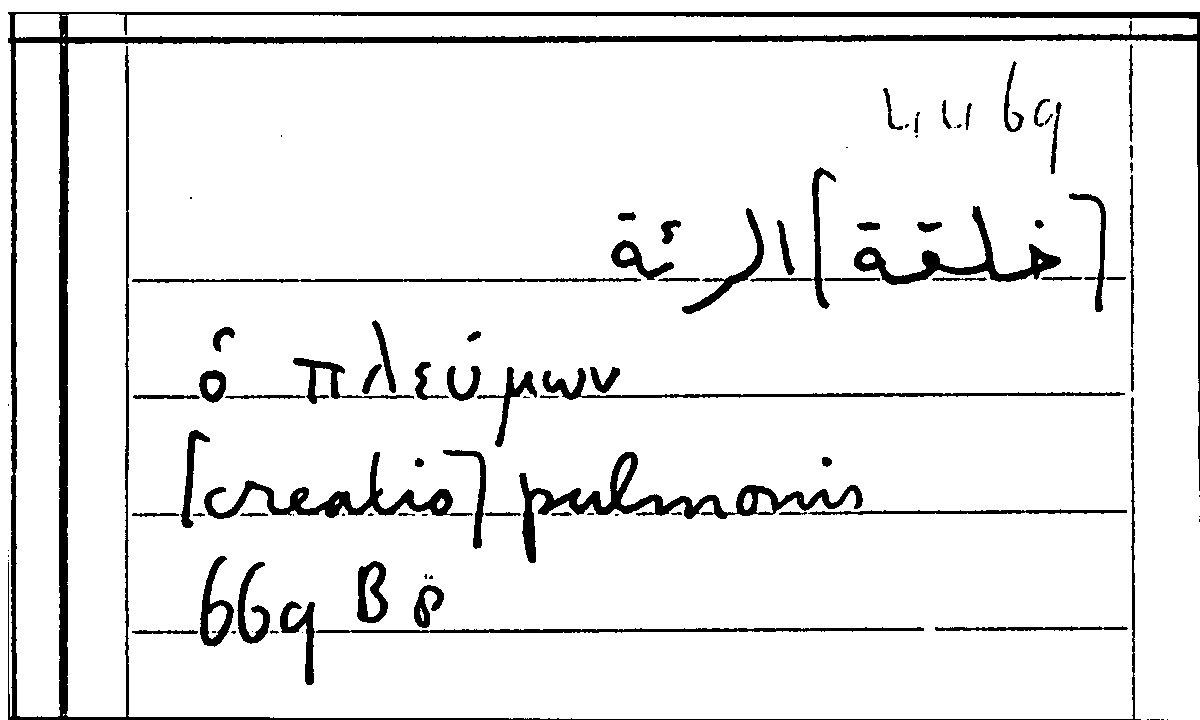 [خلقة] الرئة
ὁ πλεύμων
[creatio] pulmonis
669 B 8